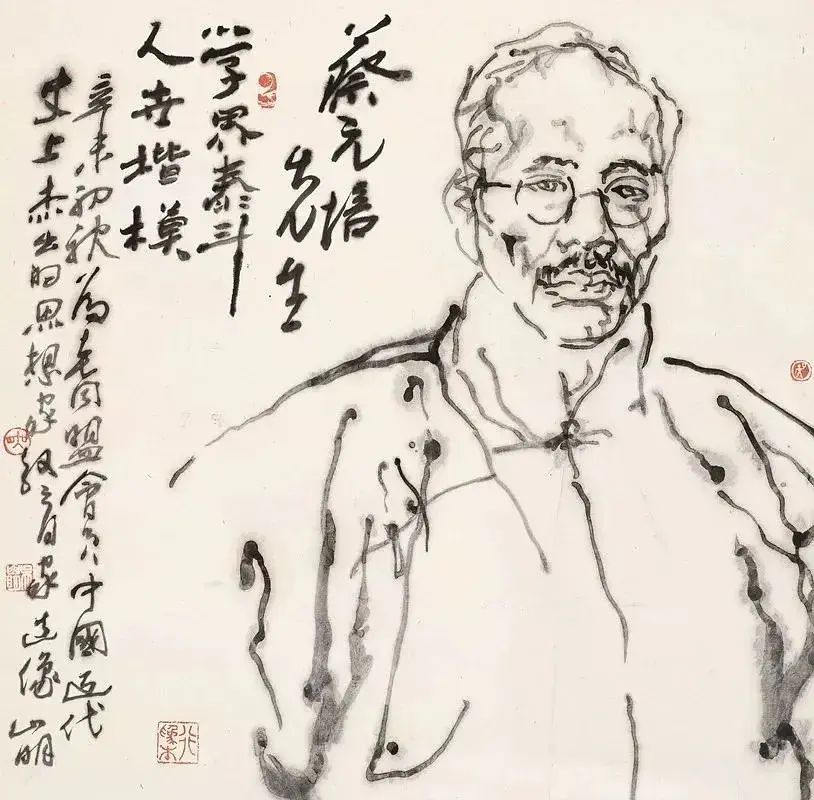 蔡元培
先生
学界泰斗
人世楷模
辛未初秋為老同盟會员中國近代
史上杰出的思想家教育家造像 山明